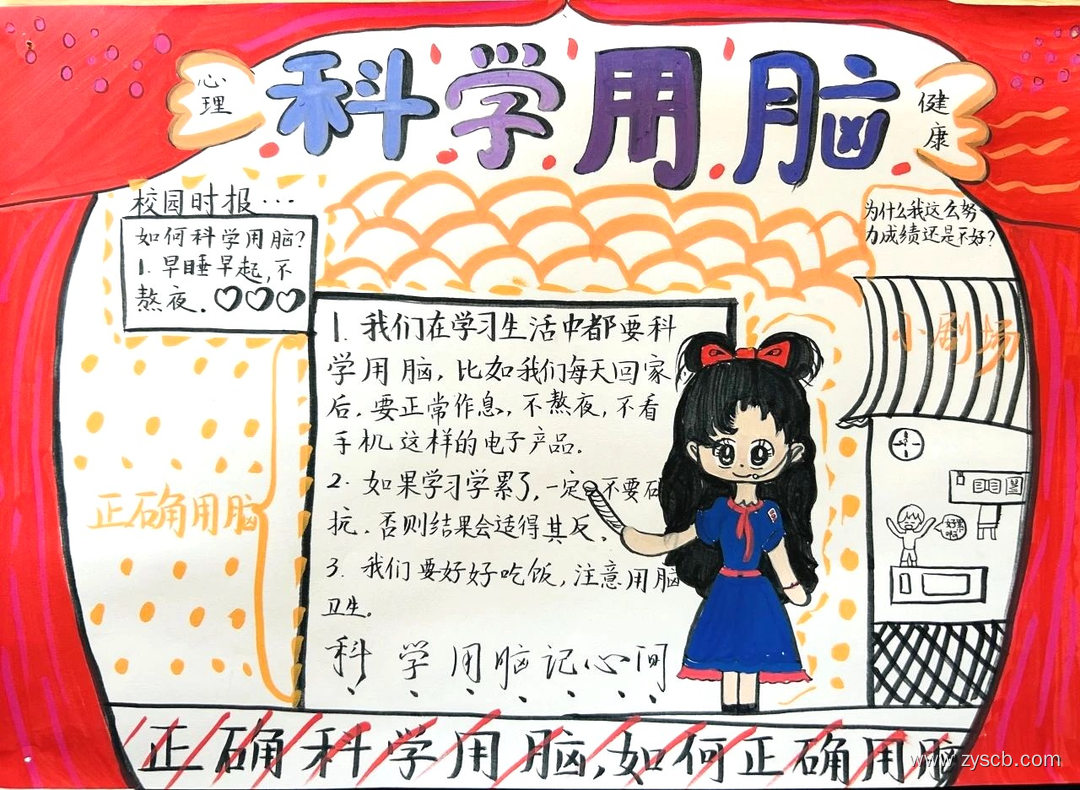 科学用脑
心理
健康
校园时报…
如何科学用脑?
1.早睡早起,不
熬夜.
为什么我这么努
力成绩还是不好?
小剧场
1.我们在学习生活中都要科
学用脑,比如我们每天回家
后,要正常作息,不熬夜,不看
手机这样的电子产品.
2.如果学习学累了,一定不要硬
抗,否则结果会适得其反.
3.我们要好好吃饭,注意用脑
卫生.
科学用脑记心间
正确用脑
正确科学用脑,如何正确用脑
www.zyscb.com